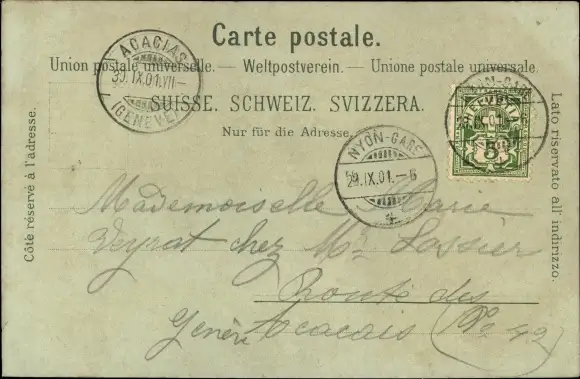 Carte postale.
Union postale universelle. — Weltpostverein. — Unione postale universale.
SUISSE. SCHWEIZ. SVIZZERA.
Nur für die Adresse.
Côté réservé à l'adresse.
Lato riservato all' indirizzo.
ACACIAS
30.IX.01.VII-
(GENÈVE)
NYON-GARE
29.IX.01.-6
NYON-GARE
HELVETIA
5
Mademoiselle Marie
Veyrat chez Mr Lassier
Route des
Genève Acacais (No 42)